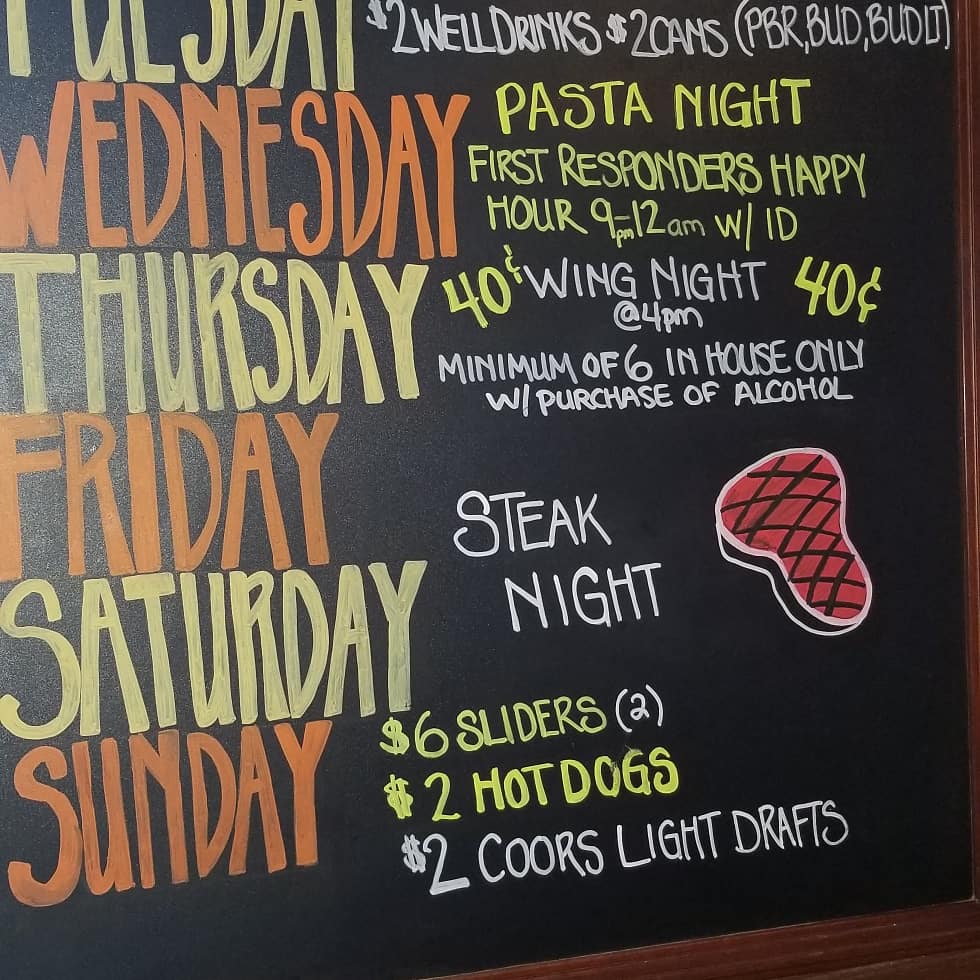 TUESDAY $2 WELL DRINKS $2 CANS (PBR, BUD, BUD LT)
WEDNESDAY PASTA NIGHT
FIRST RESPONDERS HAPPY
HOUR 9pm-12am W/ ID
THURSDAY 40¢ WING NIGHT 40¢
@4pm
MINIMUM OF 6 IN HOUSE ONLY
W/ PURCHASE OF ALCOHOL
FRIDAY
STEAK
NIGHT
SATURDAY
SUNDAY $6 SLIDERS (2)
$2 HOT DOGS
$2 COORS LIGHT DRAFTS